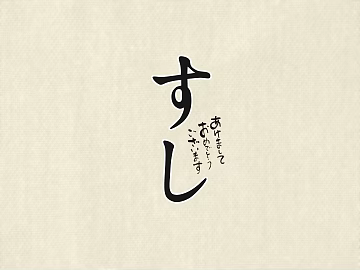 すし
あけまして
おめでとう
ございます